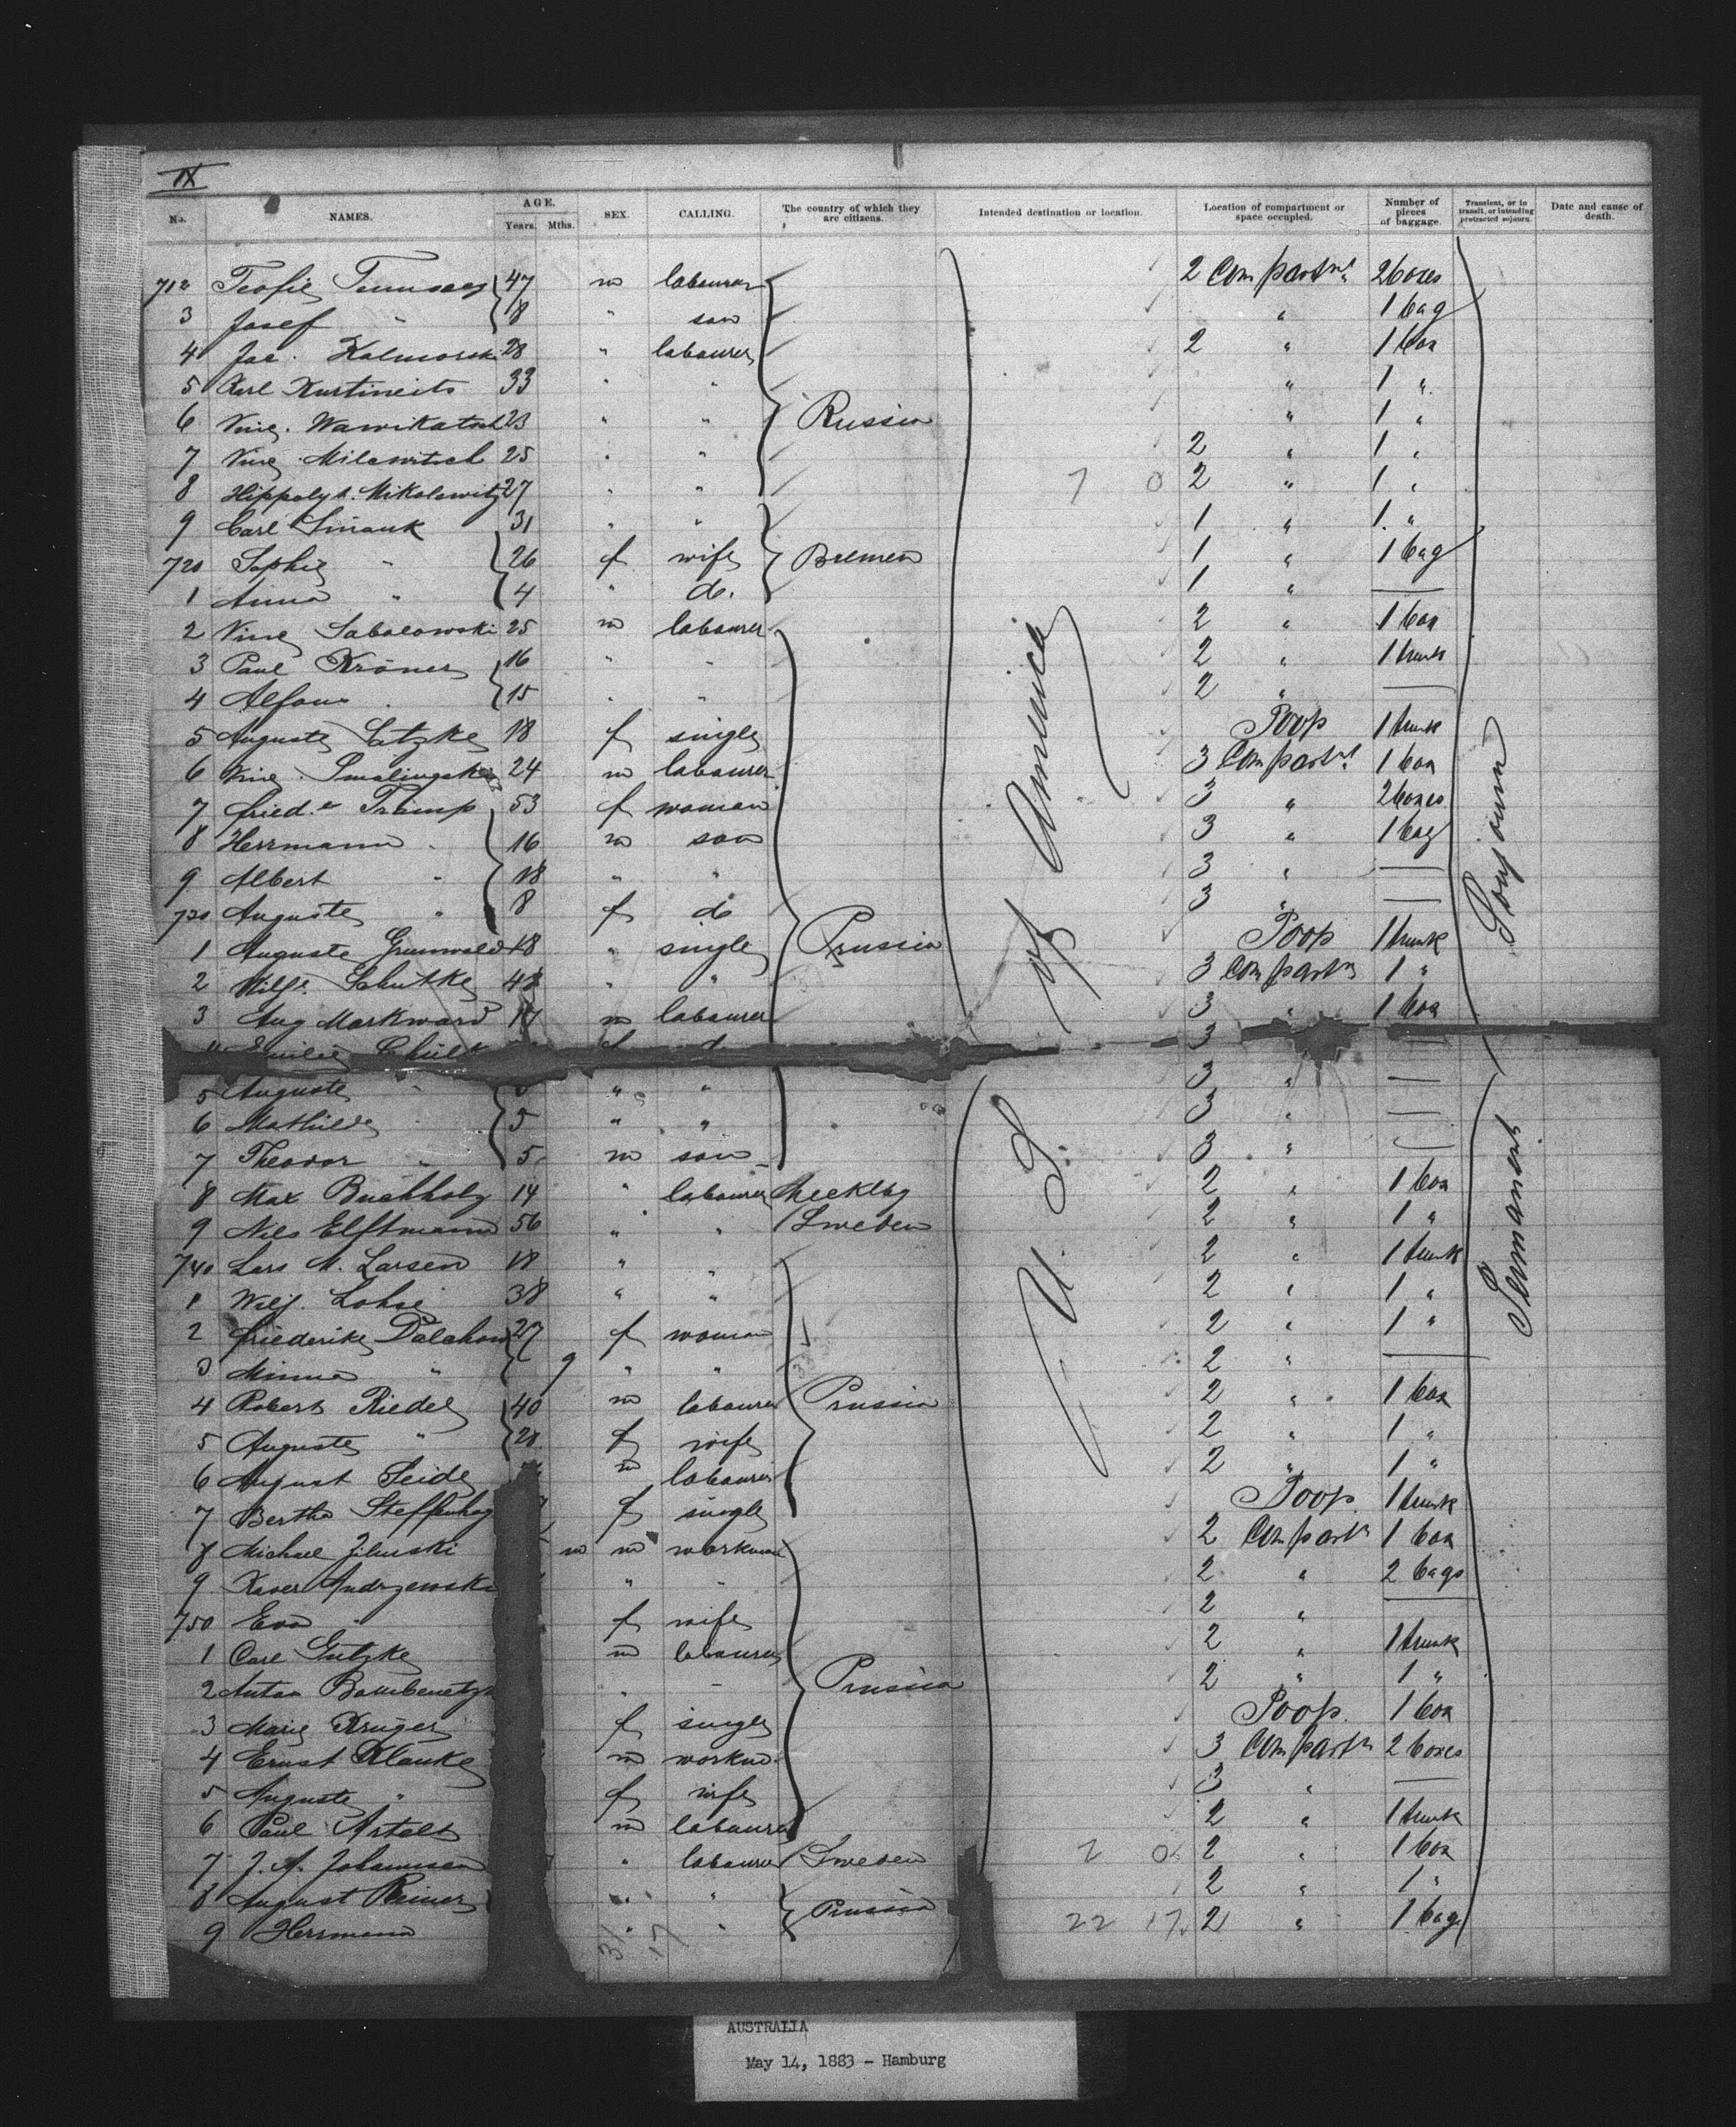 IX
No. NAMES. AGE. Years. Mths. SEX. CALLING. The country of which they are citizens. Intended destination or location. Location of compartment or space occupied. Number of pieces of baggage. Transient, or in transit, or intending protracted sojourn. Date and cause of death.
712 Teofil 47 m labourer 2 Compartmt 2 boxes
3 Josef " 18 " son " 1 bag
4 Jac. 28 " labourer 2 " 1 box
5 Karl Kurtineits 33 " " " 1 "
6 Vinc. 23 " " Russia " 1 "
7 Vinc. Milewitsch 25 " " 2 " 1 "
8 Hippolyt. Mikolowitz 27 " " 7 0 2 " 1 "
9 Carl Smauk 31 " " 1 " 1 "
720 Sophie " 26 f wife Bremen 1 " 1 bag
1 Anna " 4 " do. 1 " —
2 Vinc Sabolowski 25 m labourer 2 " 1 box
3 Paul Kröner 16 " " 2 " 1 trunk
4 Alfons " 15 " " 2 " —
5 Auguste Latzke 18 f single Poop 1 trunk
6 Vinc. 24 m labourer 3 Compartmt 1 box
7 Fried.e Tramp 53 f woman 3 " 2 boxes
8 Herrmann " 16 m son 3 " 1 bag
9 Albert " 18 " " 3 " —
730 Auguste " 8 f do 3 " —
1 Auguste Grunwald 18 " single Prussia Poop 1 trunk
2 Wilh. Schutke 48 " " 3 Compartm 1 "
3 Aug Markward 17 m labourer 3 " 1 box
4 Emilie f 3 —
5 Auguste " " " 3 " —
6 Mathilde " 5 " " 3 " —
7 Theodor " 5 m son 3 " —
8 Max Buchholz 14 " labourer Mecklbg 2 " 1 box
9 Nils Elftmann 56 " " Sweden 2 " 1 "
740 Lars M. Larsen 18 " " 2 " 1 trunk
1 Wilh. Lohse 38 " " 2 " 1 "
2 Friederike Dalchow 27 f woman 2 " 1 "
3 Minna " 9 " " 2 " —
4 Robert Riedel 40 m labourer Prussia 2 " 1 box
5 Auguste " 28 f wife 2 " 1 "
6 August Seide m labourer 2 " 1 "
7 Bertha Steffenhag f single Poop 1 trunk
8 Michael Zilinski m m workman 2 Compartm 1 box
9 Xaver Andrzewski " " 2 " 2 bags
750 Eva " f wife 2 " —
1 Carl Gutzke m labourer 2 " 1 trunk
2 Anton " " Prussia 2 " 1 "
3 Marie Krüger f single Poop. 1 box
4 Ernst Klauke m workm. 3 Compartm 2 boxes
5 Auguste " f wife 3 " —
6 Paul Artelt m labourer 2 " 1 trunk
7 J. A. Johannsen " labourer Sweden 2 0 2 " 1 box
8 August Reimer " " Prussia 2 " 1 "
9 Herrmann " " 22 17 2 " 1 bag
31 17
U. S. of America
Permanent Sojourn
AUSTRALIA
May 14, 1883 - Hamburg